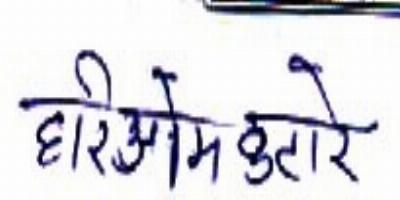 हरिओम कुटारे